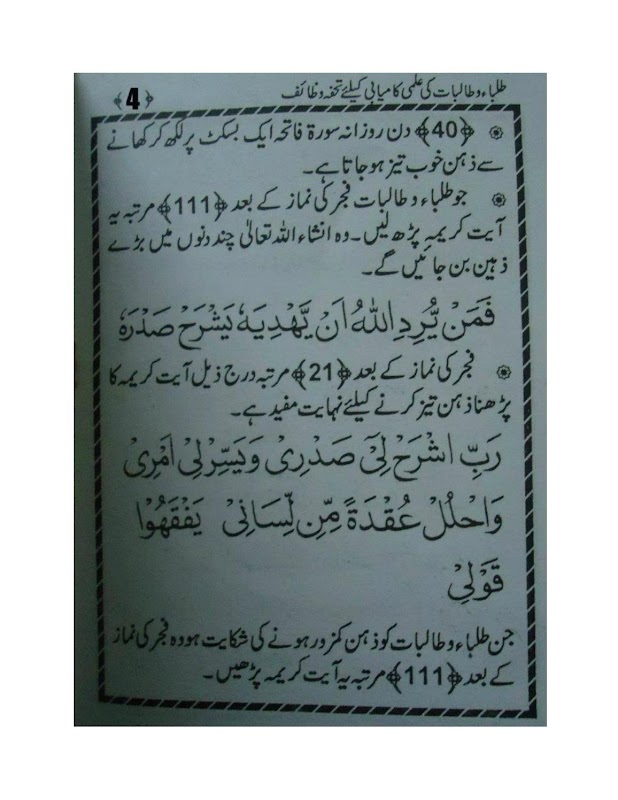 طلباء و طالبات کی علمی کامیابی کیلئے تحفہ وظائف ﴿4﴾
۞ ﴿40﴾ دن روزانہ سورۃ فاتحہ ایک بسکٹ پر لکھ کر کھانے
سے ذہن خوب تیز ہو جاتا ہے۔
۞ جو طلباء و طالبات فجر کی نماز کے بعد ﴿111﴾ مرتبہ یہ
آیت کریمہ پڑھ لیں۔ وہ انشاء اللہ تعالیٰ چند دنوں میں بڑے
ذہین بن جائیں گے۔
فَمَنْ یُّرِدِ اللّٰہُ اَنْ یَّھْدِیَہٗ یَشْرَحْ صَدْرَہٗ
۞ فجر کی نماز کے بعد ﴿21﴾ مرتبہ درج ذیل آیت کریمہ کا
پڑھنا ذہن تیز کرنے کیلئے نہایت مفید ہے۔
رَبِّ اشْرَحْ لِیْ صَدْرِیْ وَیَسِّرْ لِیْ اَمْرِیْ
وَاحْلُلْ عُقْدَۃً مِّنْ لِّسَانِیْ یَفْقَھُوْا
قَوْلِیْ
جن طلباء و طالبات کو ذہن کمزور ہونے کی شکایت ہو وہ فجر کی نماز
کے بعد ﴿111﴾ مرتبہ یہ آیت کریمہ پڑھیں۔